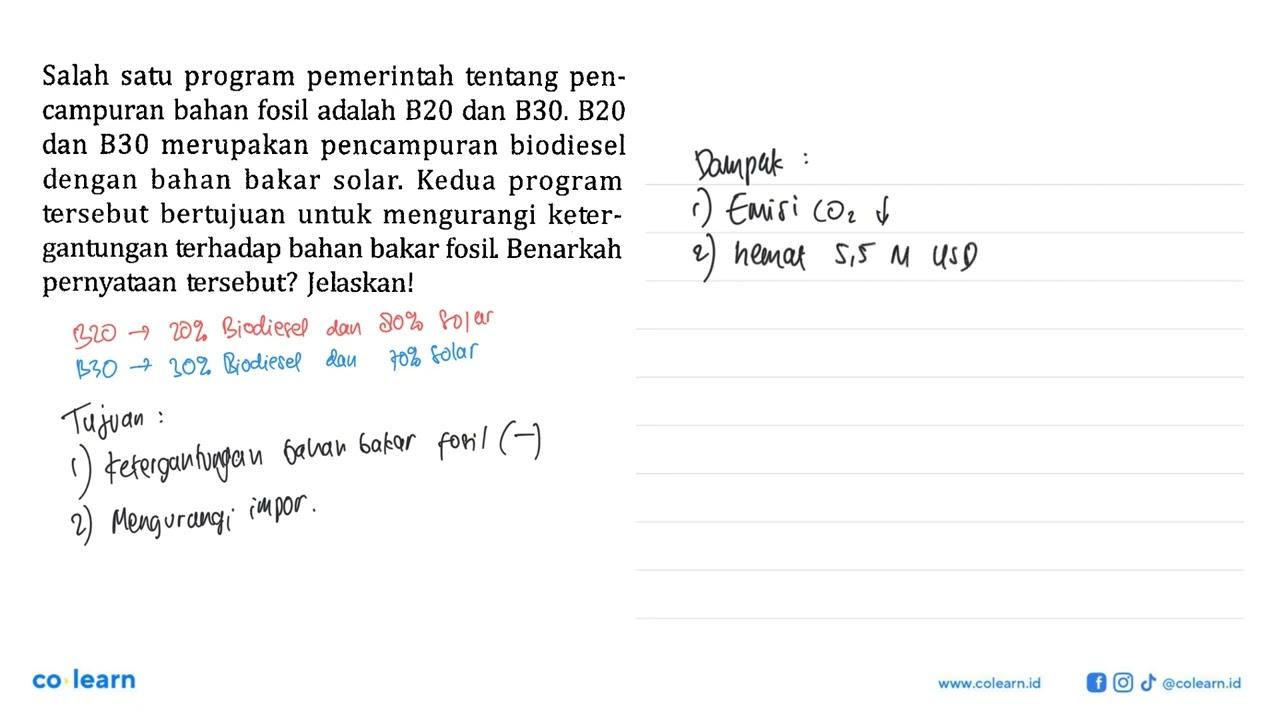 Salah satu program pemerintah tentang pen-
campuran bahan fosil adalah B20 dan B30. B20
dan B30 merupakan pencampuran biodiesel
dengan bahan bakar solar. Kedua program
tersebut bertujuan untuk mengurangi keter-
gantungan terhadap bahan bakar fosil. Benarkah
pernyataan tersebut? Jelaskan!
B20 → 20% Biodiesel dan 80% Solar
B30 → 30% Biodiesel dan 70% Solar
Tujuan :
1) Ketergantungan bahan bakar fosil (-)
2) Mengurangi impor.
Dampak :
1) Emisi CO₂ ↓
2) hemat 5,5 M USD
co learn
www.colearn.id
@colearn.id